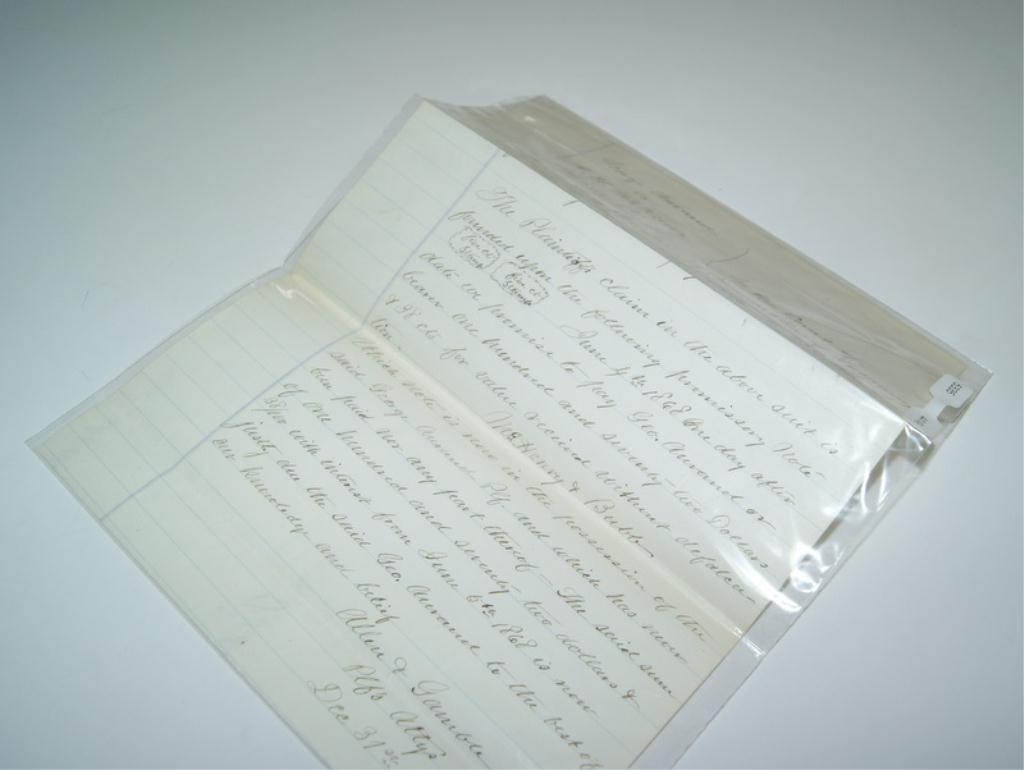 The Plaintiffs claim in the above suit is
founded upon the following promissory Note
Five ct Stamp Five ct Stamp June 4th 1868 One day after
date we promise to pay Geo. Aurand or
bearer one hundred and seventy-two Dollars
& cts for value received without defalca-
tion McHenry & Bubb
Which note is now in the possession of the
said George Aurand Plf and which has never
been paid nor any part thereof — The said sum
of one hundred and seventy two dollars &
with interest from June 6th 1868 is now
justly due the said Geo. Aurand to the best of
our knowledge and belief
Allen & Gamble
Plffs Attys
Dec 31st